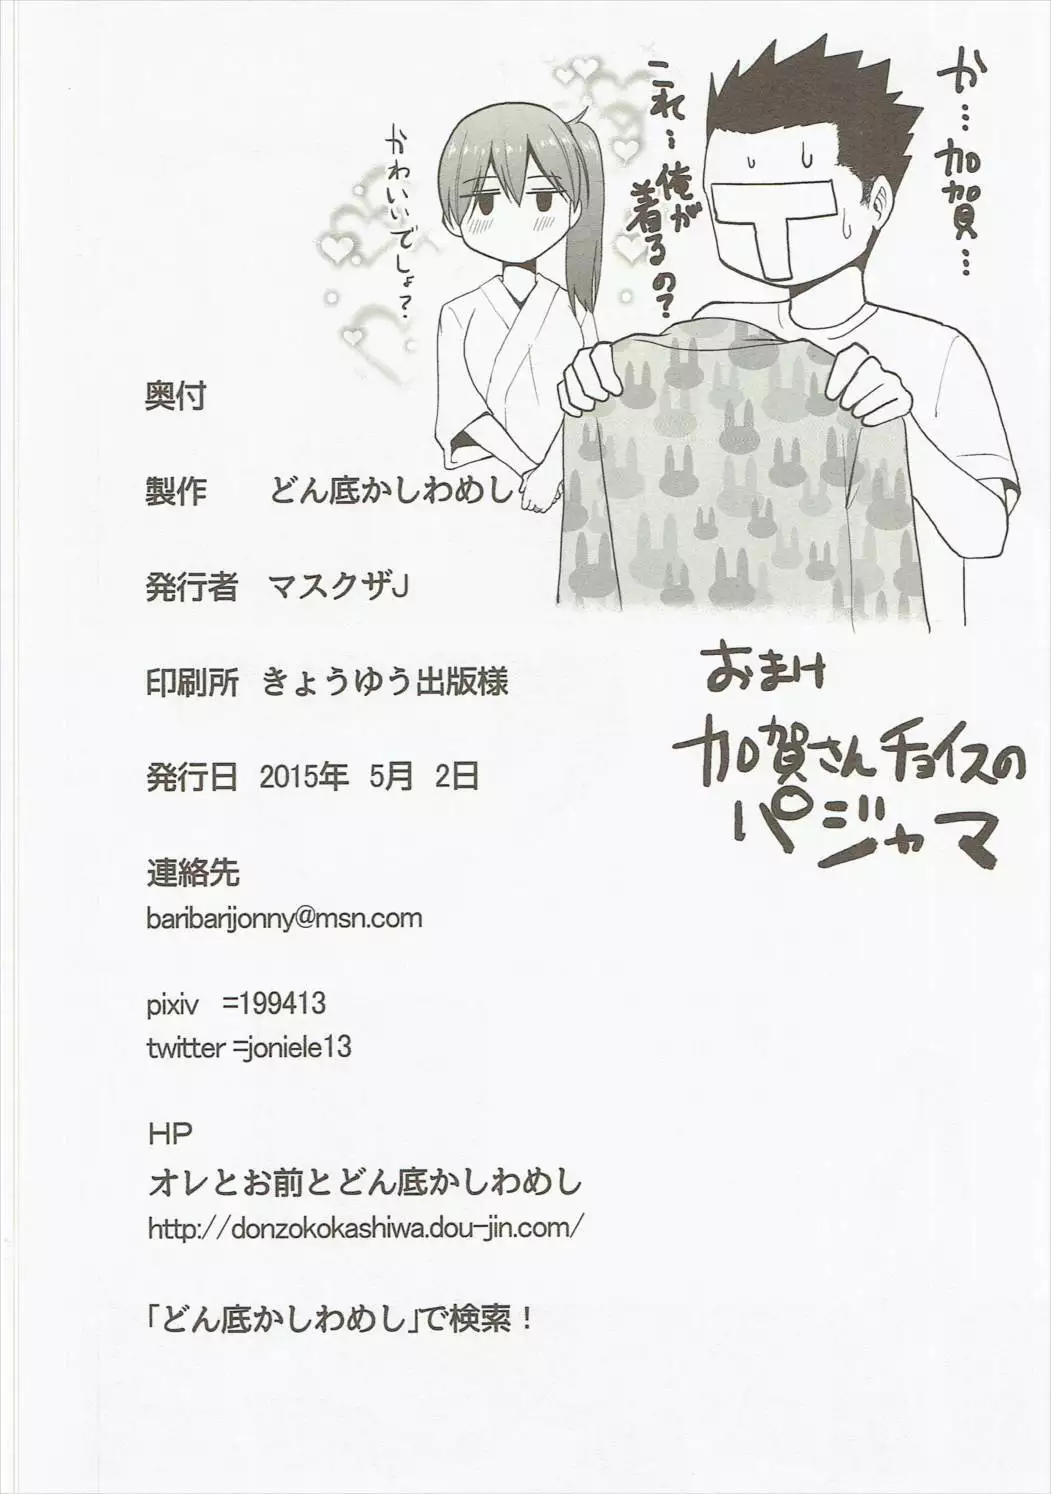 か…加賀…
これ…俺が
着るの?
かわいいでしょ?
奥付
製作　どん底かしわめし
発行者　マスクザJ
印刷所　きょうゆう出版様
発行日　2015年　5月　2日
連絡先
baribarijonny@msn.com
pixiv　=199413
twitter =joniele13
HP
オレとお前とどん底かしわめし
http://donzokokashiwa.dou-jin.com/
「どん底かしわめし」で検索！
おまけ
加賀さんチョイスの
パジャマ